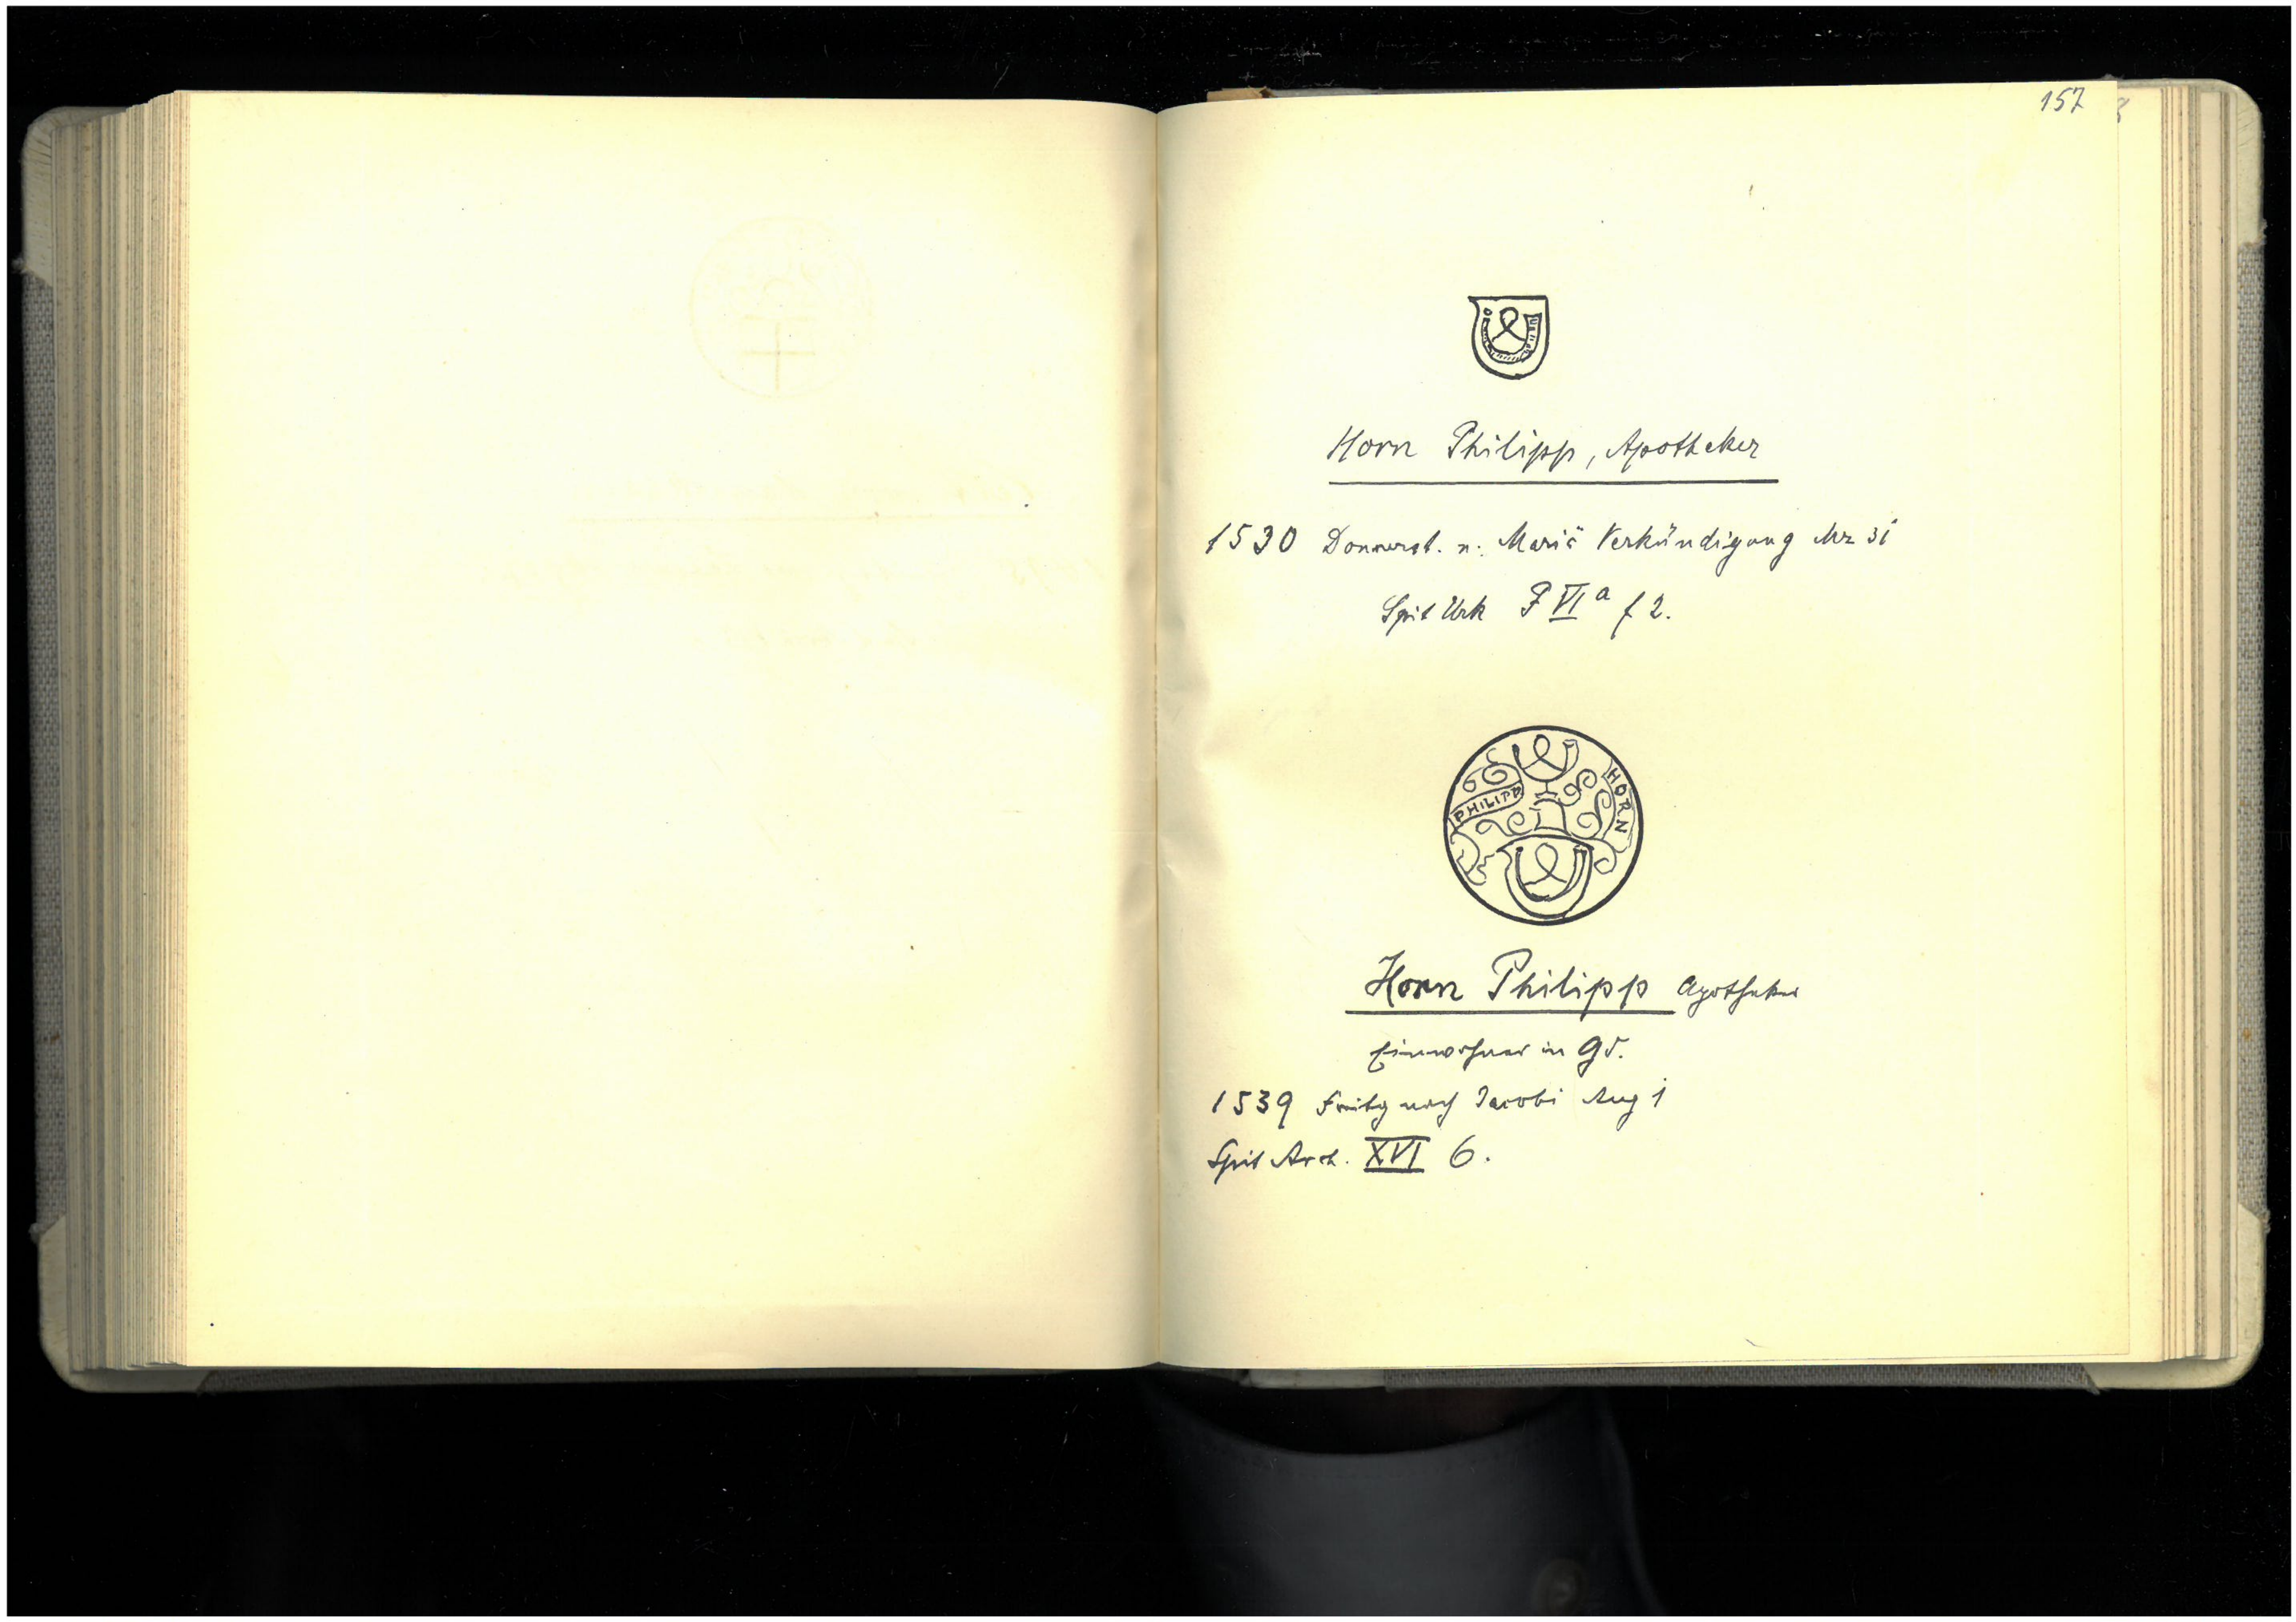 157
Horn Philipp, Apotheker
1530 Donnerst. n. Mariä Verkündigung Mrz 31
Spit Urk F VI a f 2.
PHILIPP HORN
Horn Philipp Apotheker
Einwohner in Gd.
1539 Freitg nach Jacobi Aug 1
Spit Arch. XVI 6.